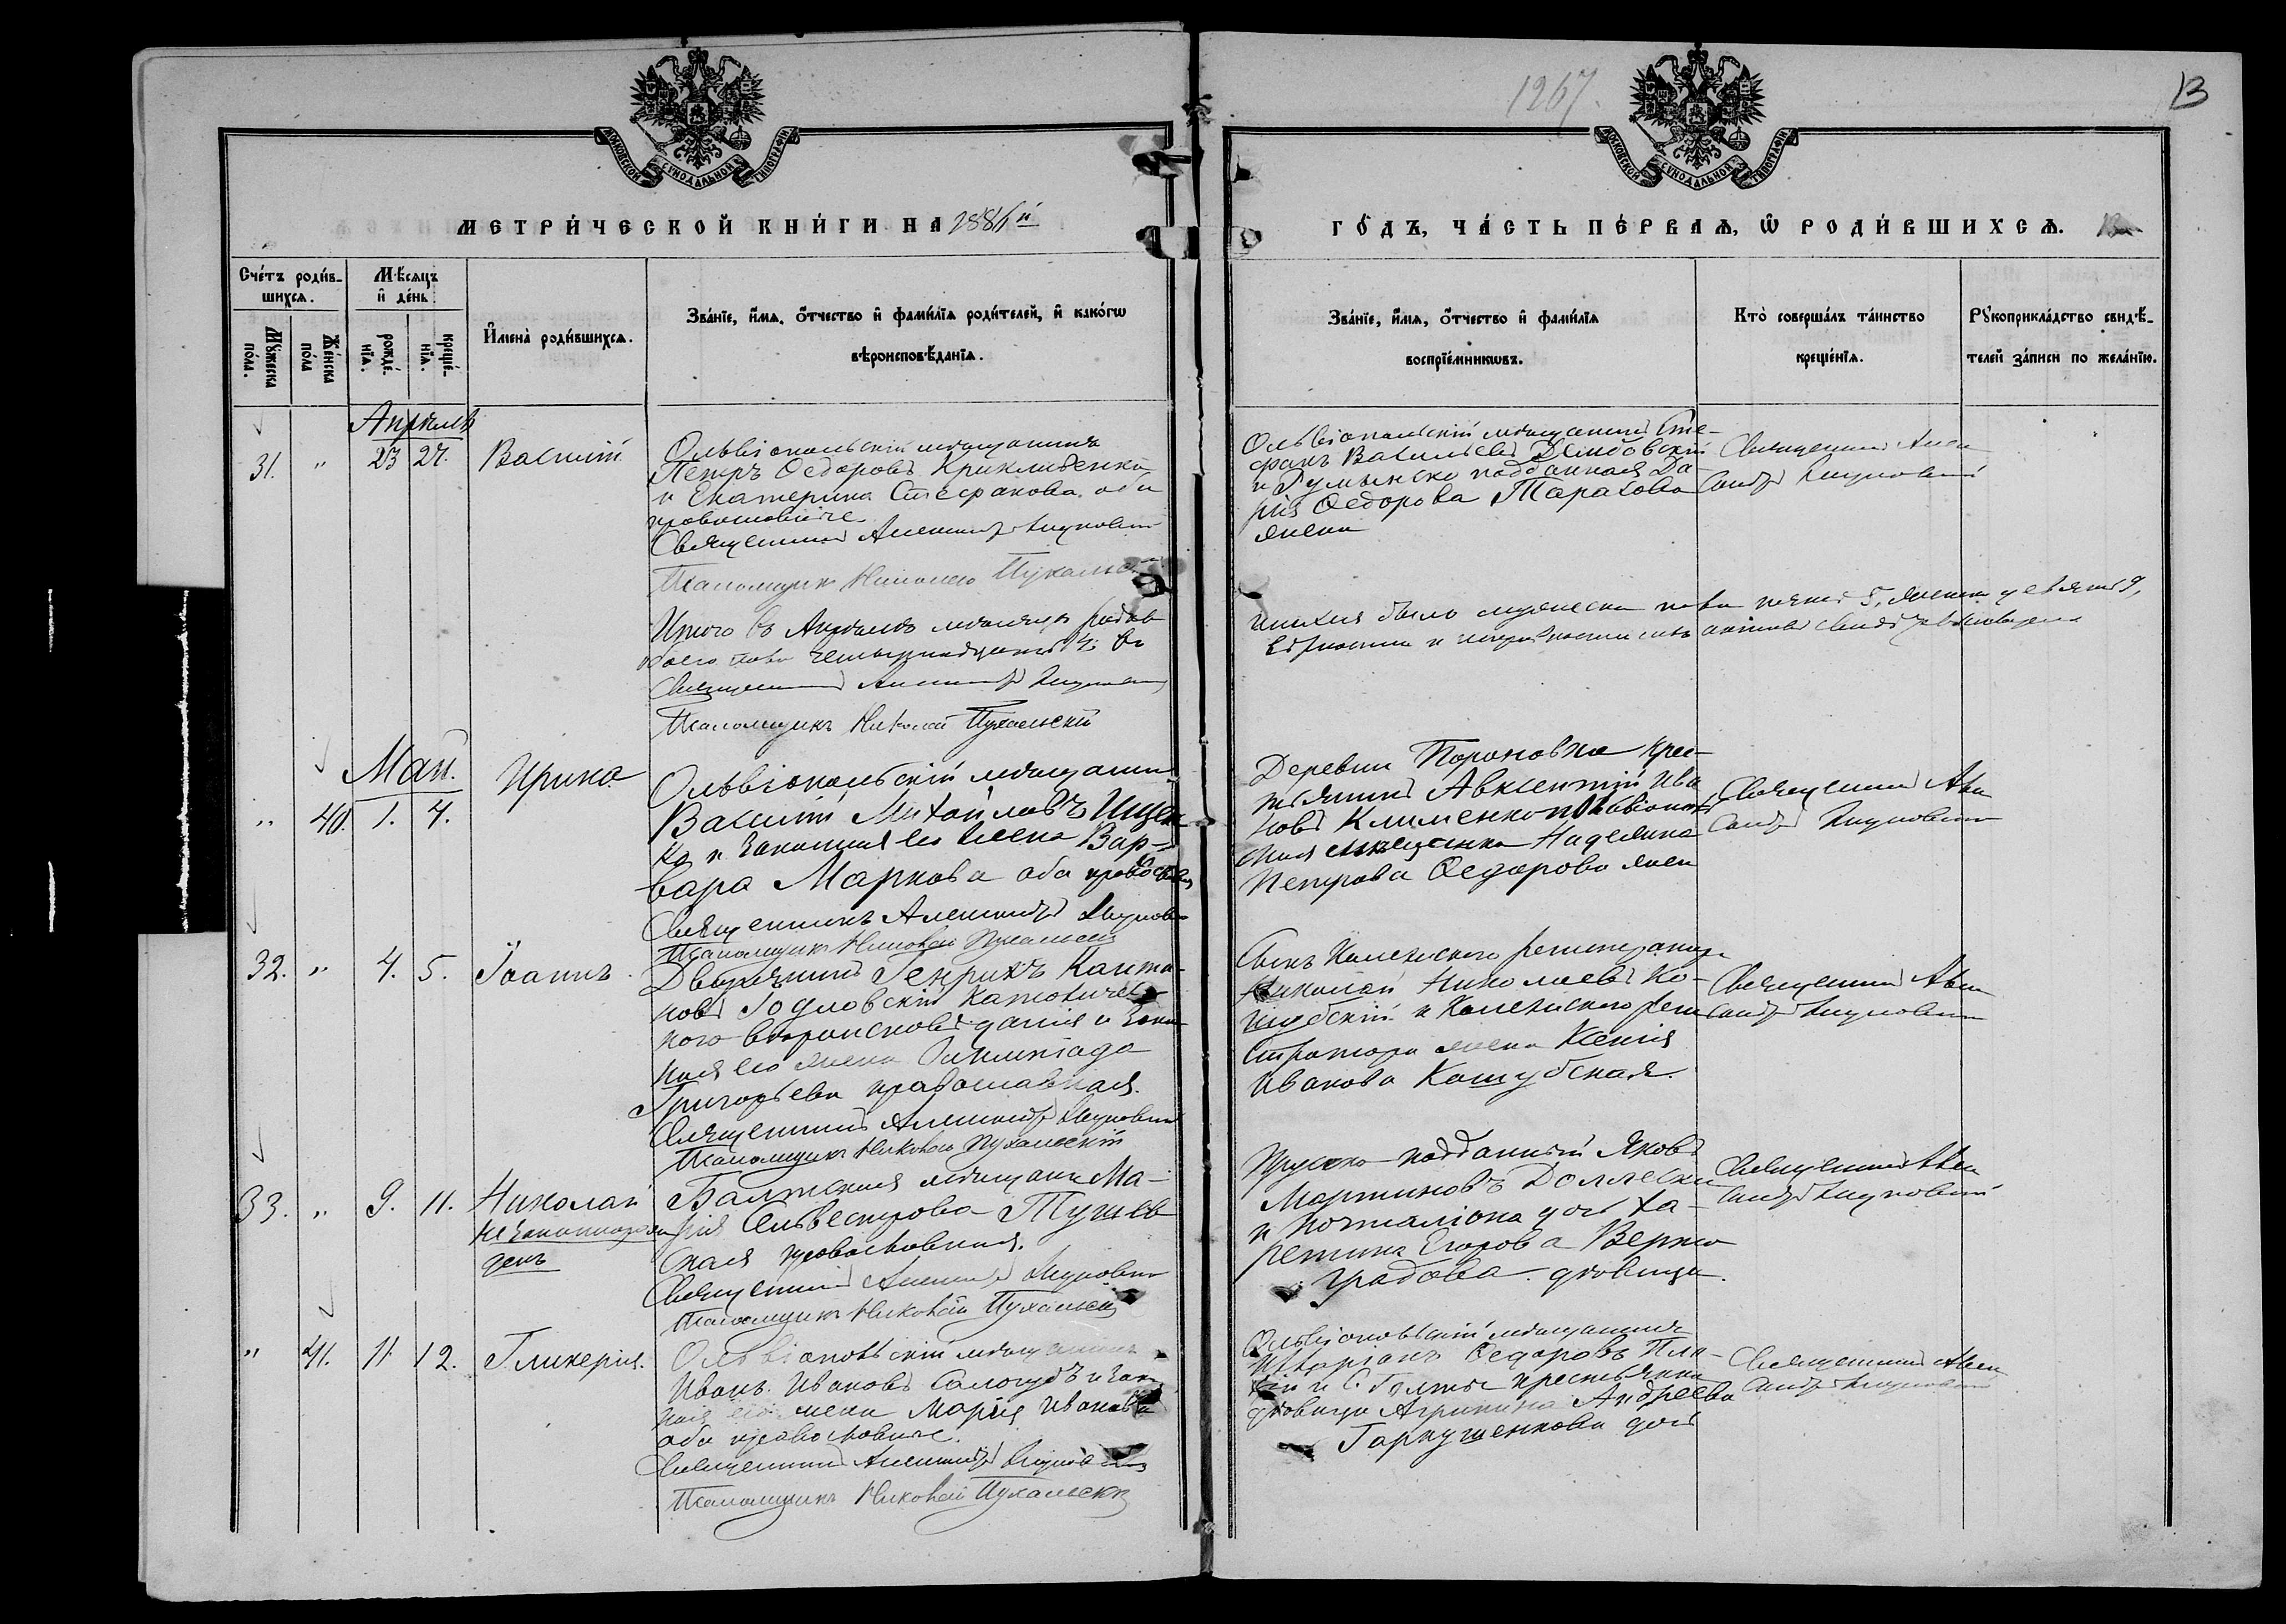 1267.
13
МОСКОВСКОЙ СѴНОДАЛЬНОЙ ТИПОГРАФІИ
МОСКОВСКОЙ СѴНОДАЛЬНОЙ ТИПОГРАФІИ
МЕТРИ́ЧЕСКОЙ КНИ́ГИ НА 1886й
ГО́ДЪ, ЧА́СТЬ ПЕ́РВАѦ, Ѿ РОДИ́ВШИХСѦ.
Сче́тъ роди́в-
шихсѧ.
Мѣ́сѧцъ
и҆ де́нь
Мꙋ́жеска
по́ла.
Же́нска
по́ла
рожде́-
нїѧ.
креще́-
нїѧ.
И҆мена̀ роди́вшихсѧ.
Зва́нїе, и҆́мѧ, ѻ҆́тчество и҆ фами́лїѧ роди́телей, и҆ како́гѡ
вѣроисповѣ́данїѧ.
Зва́нїе, и҆́мѧ, ѻ҆́тчество и҆ фами́лїѧ
воспрїе́мникѡвъ.
Кто̀ соверша́лъ та́инство
креще́нїѧ.
Рꙋкоприкла́дство свидѣ́-
телей за́писи по жела́нїю.
Апрѣль
31. " 23 27. Василій
Ольвіопольскій мѣщанинъ
Петръ Ѳедоровъ Криклибенко
и Екатерина Стефанова оба
православные
Священникъ Александръ
Псаломщикъ Николай Пухальскій
Ольвіопольскій мѣщанинъ Сте-
фанъ Васильевъ Дембовскій
и Румынско подданная Да-
рія Ѳедорова Тарасова
жена
Священникъ Алек
сандръ
Итого въ Апрѣлѣ мѣсяцѣ родив
обоего пола четырнадцать 14: въ
Священникъ Александръ
Псаломщикъ Николай Пухальскій
было мужеска пола пять 5, женска девять 9,
Май.
" 40. 1. 4. Ирина
Ольвіопольскій мѣщанинъ
Василій Михайловъ Ищен
ко и законная его жена Вар-
вара Маркова оба православ
Священникъ Александръ
Псаломщикъ Николай Пухальскій
Деревни Пороновки крес-
тьянинъ Авксентій Ива
новъ Клименко и Ольвіополь
ская мѣщанка Надежда
Петрова Ѳедорова жена
Священникъ Алек
сандръ
32. " 4. 5. Іоаннъ
Дворянинъ Генрихъ Канто-
новъ Годловскій Католичес
кого вѣроисповѣданія и закон
ная его жена
Григорьева православная.
Священникъ Александръ
Псаломщикъ Николай Пухальскій
Сынъ Колежского регистратора
Николай Николаевъ Ко-
шубскій и Колежского реги
стратора жена Ксенія
Иванова Кошубская.
Священникъ Алек
сандръ
33. " 9. 11. Николай
незаконнорож
денъ
Балтская мѣщанка Ма-
рія Сельвестрова Тушев
ская православная.
Священникъ Александръ
Псаломщикъ Николай Пухальскій
Прусско подданный Яковъ
Мартиновъ Доллески
и почталіона дочь Ха-
ретина Егорова Верхо
градова дѣвица.
Священникъ Алек
сандръ
" 41. 11. 12. Гликерія.
Ольвіопольскій мѣщанинъ
Иванъ Ивановъ Салогубъ и закон
ная его жена Марія Иванова
оба православные.
Священникъ Александръ
Псаломщикъ Николай Пухальскій
Ольвіопольскій мѣщанинъ
Маріанъ Ѳедоровъ
и с. Голты крестьянка
дѣвица Агрипина Андреева
Гаркушенкова дочь
Священникъ Алек
сандръ